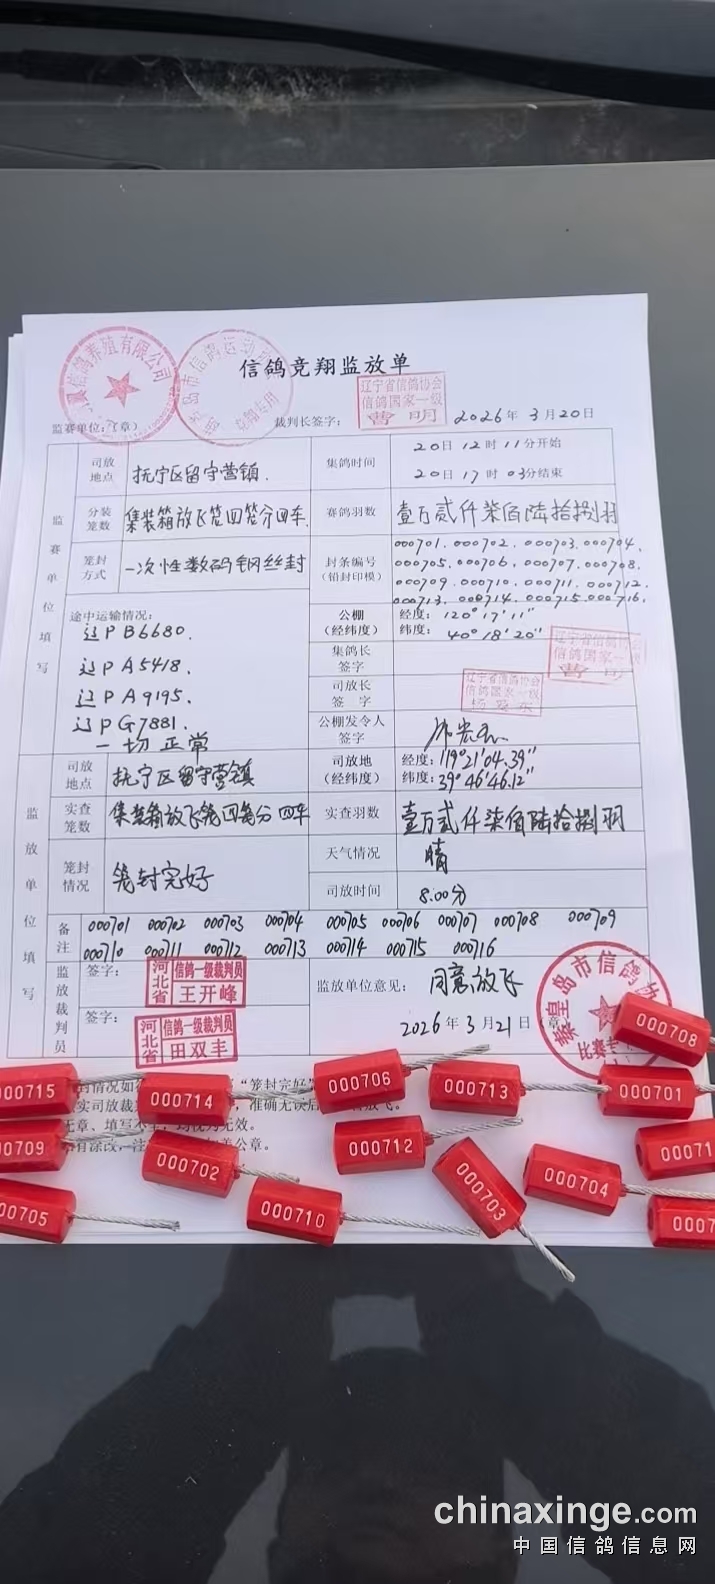 信鸽养殖有限公司
岛市信鸽运动
竞翔专用
信鸽竞翔监放单
辽宁省信鸽协会
信鸽国家一级
曹明
监赛单位:(章)
裁判长签字:
2026年3月20日
监赛单位填写
司放地点
抚宁区留守营镇.
集鸽时间
20日12时11分开始
20日17时03分结束
分装笼数
集装箱放飞笼四笼分四车.
赛鸽羽数
壹万贰仟柒佰陆拾捌羽
笼封方式
一次性数码钢丝封
封条编号(铅封印模)
000701.000702.000703.000704.
000705.000706.000707.000708.
000709.000710.000711.000712.
000713.000714.000715.000716.
途中运输情况:
辽PB6680.
辽PA5418.
辽PA9195.
辽PG7881.
一切正常
公棚(经纬度)
经度:120°17'11"
纬度:40°18'20"
集鸽长签字
辽宁省信鸽协会
信鸽国家一级
曹明
司放长签字
辽宁省信鸽协会
信鸽国家一级
公棚发令人签字
监放单位填写
司放地点
抚宁区留守营镇
司放地(经纬度)
经度:119°21'04.39"
纬度:39°46'46.12"
实查笼数
集装箱放飞笼四笼分四车
实查羽数
壹万贰仟柒佰陆拾捌羽
笼封情况
笼封完好
天气情况
晴
司放时间
8.00分
备注
000701 000702 000703 000704 000705 000706 000707 000708 000709
000710 000711 000712 000713 000714 000715 000716
监放裁判员
签字:
河北省
信鸽一级裁判员
王开峰
签字:
河北省
信鸽一级裁判员
田双丰
监放单位意见:
同意放飞
2026年3月21日(章
秦皇岛市信鸽协
比赛专
000708
000715
000714
000706
000713
000701
000709
000702
000712
00071
000705
000710
000703
000704
0007
chinaxinge.com
中国信鸽信息网